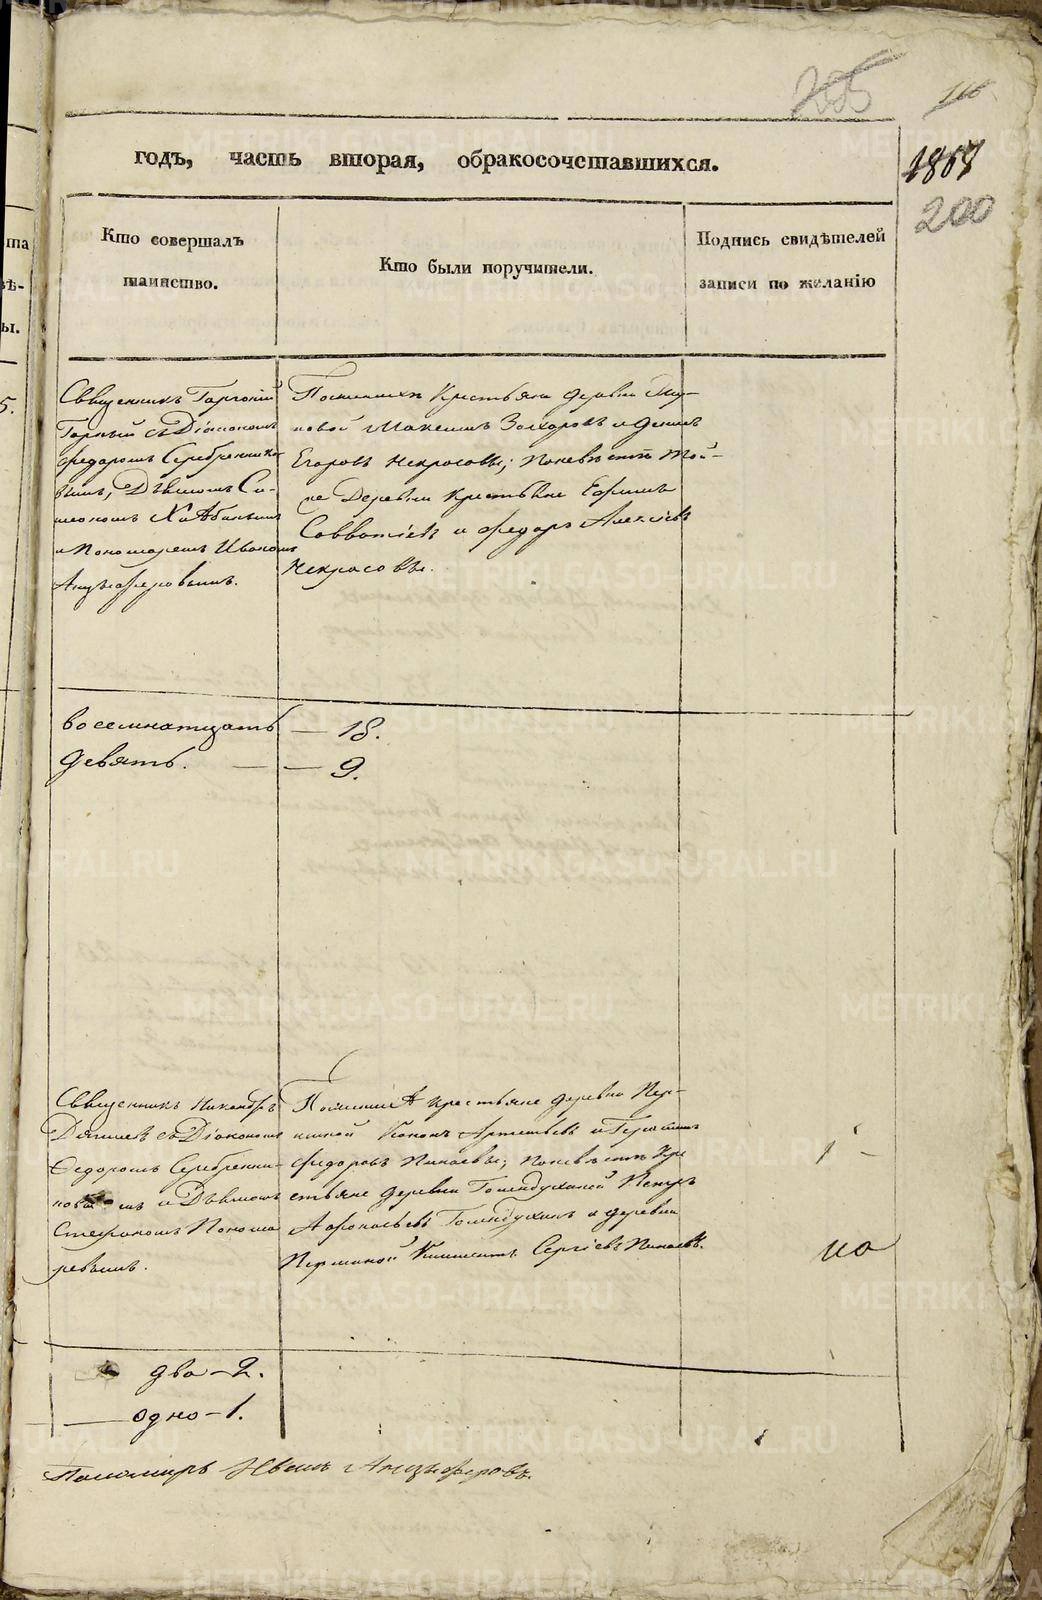 255
116
годъ, часть вторая, обракосочетавшихся.
1867
200
Кто совершалъ
таинство.
Кто были поручители.
Подпись свидѣтелей
записи по желанію
та
ѣ-
ы.
5.
Священникъ Горгоній
Горный съ Діакономъ
Федоромъ Серебренико-
вымъ, Дьячкомъ Си-
меономъ
и Пономаремъ Иваномъ
Анцыферовымъ.
Поженихѣ Крестьяна деревни
Максимъ Захаровъ и
Егоровъ Некрасовы; поневѣстѣ той-
же Деревни крестьяне Ефимъ
Савватіевъ и Федоръ Алексіевъ
Некрасовы.
восемнатцать — 18.
девять. — — 9.
Священникъ Никаноръ
съ Діакономъ
Федоромъ Серебренни-
ковымъ и Дьячкомъ
Стефаномъ Понома
ревымъ.
Поженихѣ крестьяне деревни Пер-
шиной Кононъ Артемьевъ и
Федоровъ Пинаевы; поневѣстѣ кре
стьяне деревни Голендухиной Петръ
Афонасьевъ Голендухинъ и деревни
Першиной Сергіевъ Пинаевъ.
1 -
но
два — 2.
одно — 1.
Пономарь Иванъ Анцыферовъ.
METRIKI.GASO-URAL.RU